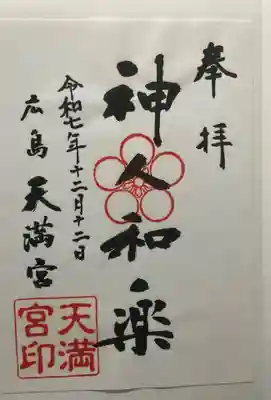 奉拝
神人和楽
令和七年十二月十二日
広島天満宮
天満宮印